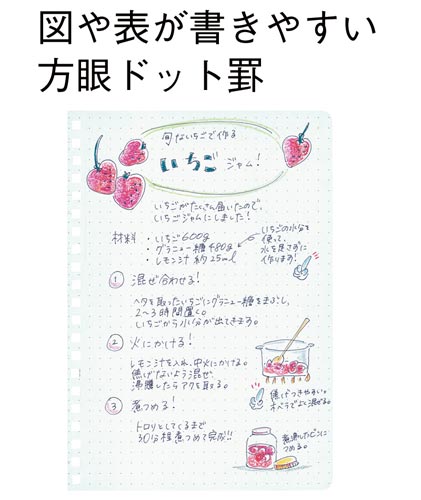 図や表が書きやすい
方眼ドット罫
旬ないちごで作る
いちごジャム!
いちごがたくさん届いたので、
いちごジャムにしました!
材料 ・いちご 600g
・グラニュー糖 480g
・レモン汁 約25ml
いちごの水分を
使って、
水を足さずに
作ります!
① 混ぜ合わせる!
ヘタを取ったいちごにグラニュー糖をまぶし、
2〜3時間置く。
いちごから水分が出てきます。
② 火にかける!
レモン汁を入れ、中火にかける。
焦げないよう混ぜ、
沸騰したらアクを取る。
焦げつきやすい。
木ベラでよく混ぜる。
③ 煮つめる!
トロリとしてくるまで
30分程煮つめて完成!!
煮沸したビンに
つめる。